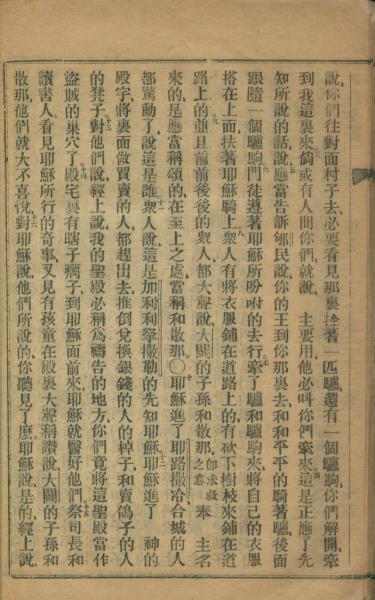 說你們往對面村子去必要看見那裏拴著一匹驢還有一個驢駒你們解開牽
到我這裏來倘或有人問你們就說 主要用他必叫你們牽來這是正應了先
知所說的話說應當告訴郇民說你的王到你那裏去和和平平的騎著驢後面
跟隨一個驢駒門徒遵著耶穌所吩咐的去行牽了驢和驢駒來將自己的衣服
搭在上面扶著耶穌騎上衆人有將衣服鋪在道路上的有砍下樹枝來鋪在道
路上的並且前前後後的衆人都大聲說大闢的子孫和散那卽求救之意奉 主名
來的是應當稱頌的在至上之處當稱和散那○耶穌進了耶路撒冷合城的人
都驚動了說這是誰衆人說這是加利利拿撒勒的先知耶穌耶穌進了 神的
殿宇將裏面做買賣的人都趕出去推倒兌換銀錢的人的棹子和賣鴿子的人
的凳子對他們說經上說我的聖殿必稱爲禱告的地方你們竟將這聖殿當作
盜賊的巢穴了殿宅裏有瞎子瘸子到耶穌面前來耶穌就醫好他們祭司長和
讀書人看見耶穌所行的奇事又見有孩童在殿裏大聲稱讚說大闢的子孫和
散那他們就大不喜悅對耶穌說他們所說的你聽見了麽耶穌說是的經上說